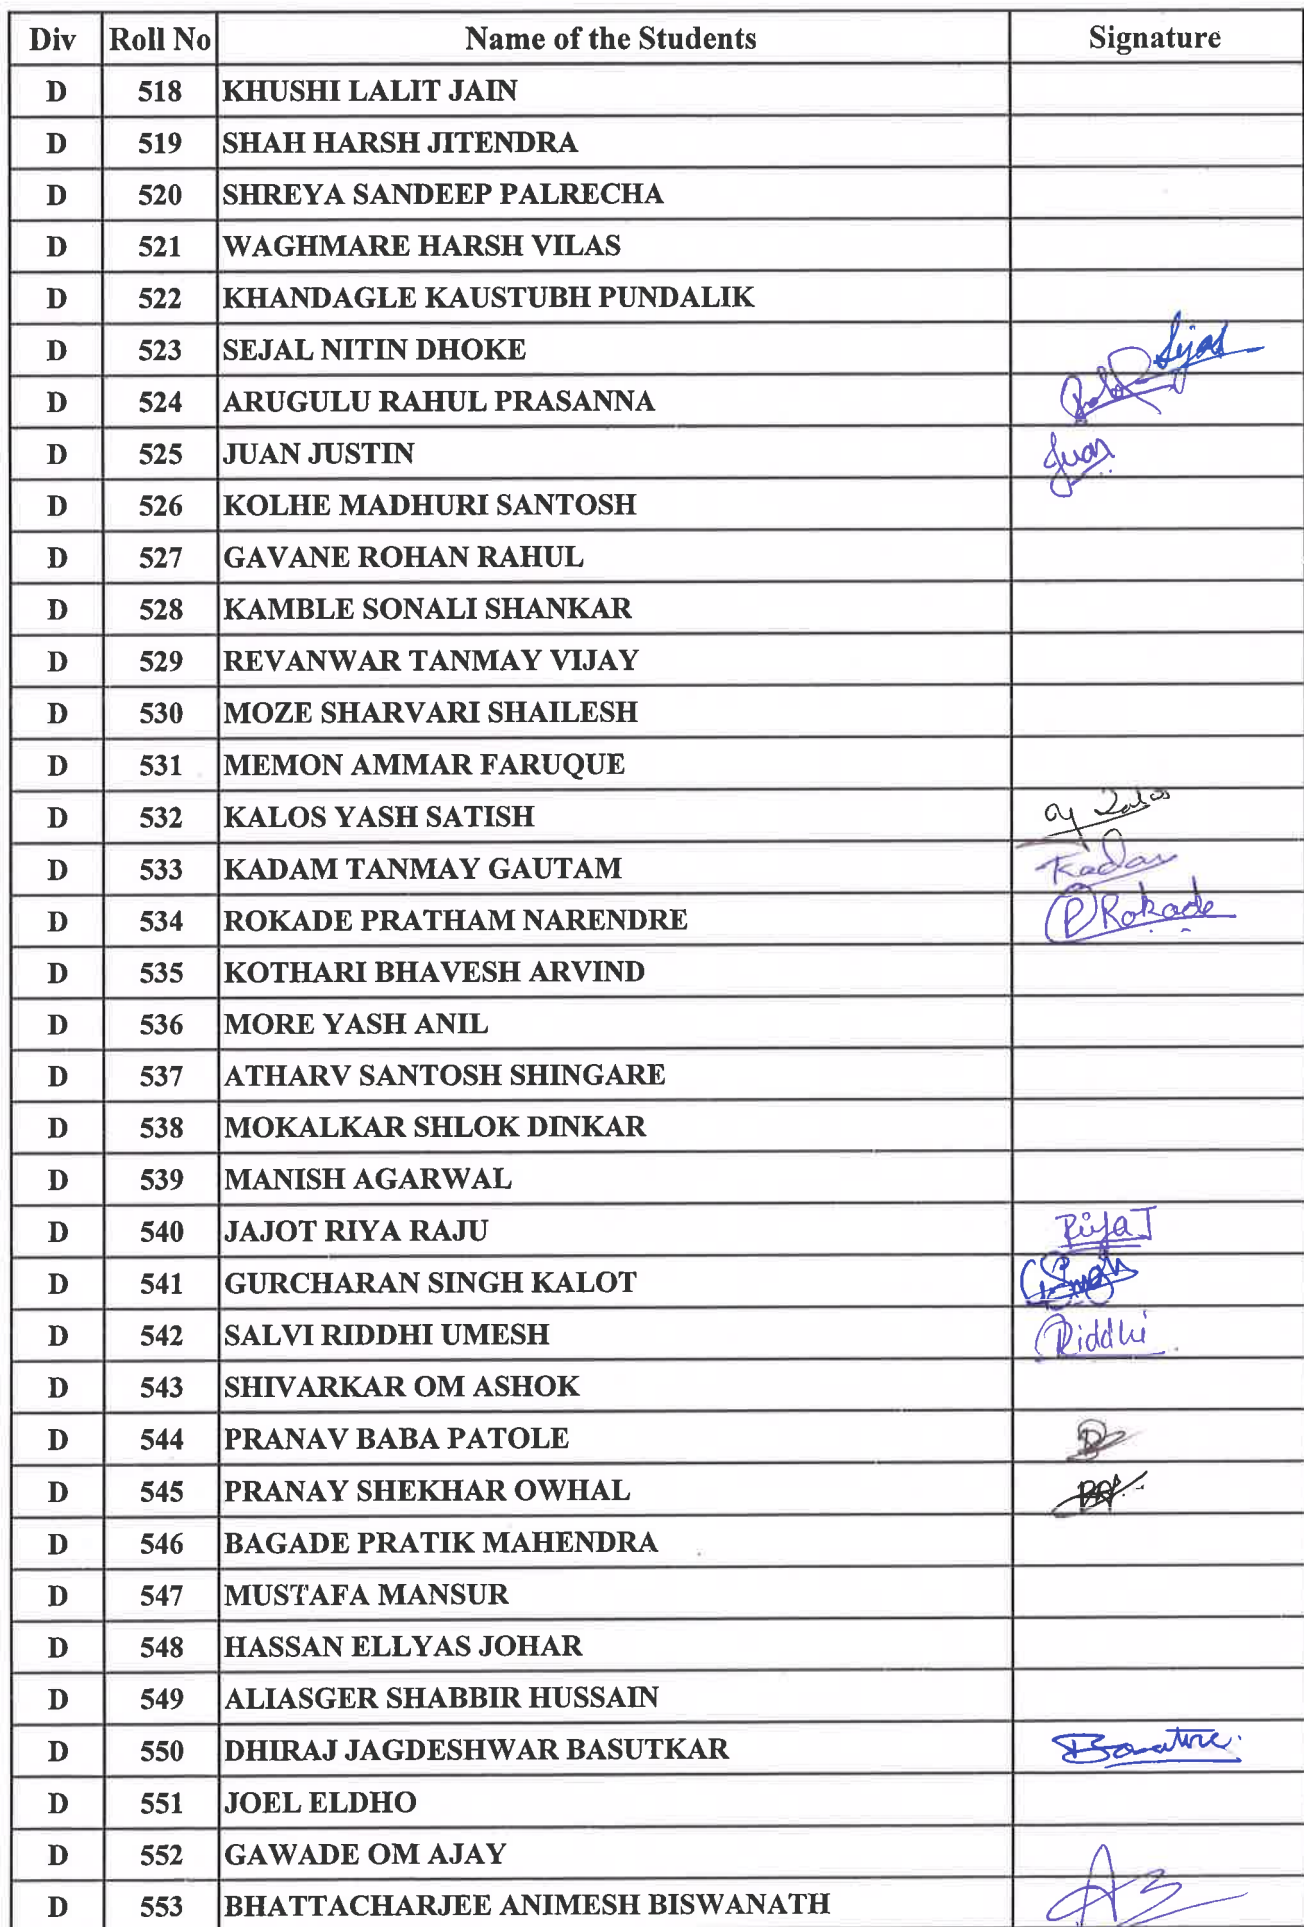 Div Roll No Name of the Students Signature
D 518 KHUSHI LALIT JAIN
D 519 SHAH HARSH JITENDRA
D 520 SHREYA SANDEEP PALRECHA
D 521 WAGHMARE HARSH VILAS
D 522 KHANDAGLE KAUSTUBH PUNDALIK
D 523 SEJAL NITIN DHOKE
D 524 ARUGULU RAHUL PRASANNA
D 525 JUAN JUSTIN Juan
D 526 KOLHE MADHURI SANTOSH
D 527 GAVANE ROHAN RAHUL
D 528 KAMBLE SONALI SHANKAR
D 529 REVANWAR TANMAY VIJAY
D 530 MOZE SHARVARI SHAILESH
D 531 MEMON AMMAR FARUQUE
D 532 KALOS YASH SATISH
D 533 KADAM TANMAY GAUTAM
D 534 ROKADE PRATHAM NARENDRE P Rokade
D 535 KOTHARI BHAVESH ARVIND
D 536 MORE YASH ANIL
D 537 ATHARV SANTOSH SHINGARE
D 538 MOKALKAR SHLOK DINKAR
D 539 MANISH AGARWAL
D 540 JAJOT RIYA RAJU Riya J
D 541 GURCHARAN SINGH KALOT
D 542 SALVI RIDDHI UMESH Riddhi
D 543 SHIVARKAR OM ASHOK
D 544 PRANAV BABA PATOLE
D 545 PRANAY SHEKHAR OWHAL
D 546 BAGADE PRATIK MAHENDRA
D 547 MUSTAFA MANSUR
D 548 HASSAN ELLYAS JOHAR
D 549 ALIASGER SHABBIR HUSSAIN
D 550 DHIRAJ JAGDESHWAR BASUTKAR
D 551 JOEL ELDHO
D 552 GAWADE OM AJAY
D 553 BHATTACHARJEE ANIMESH BISWANATH